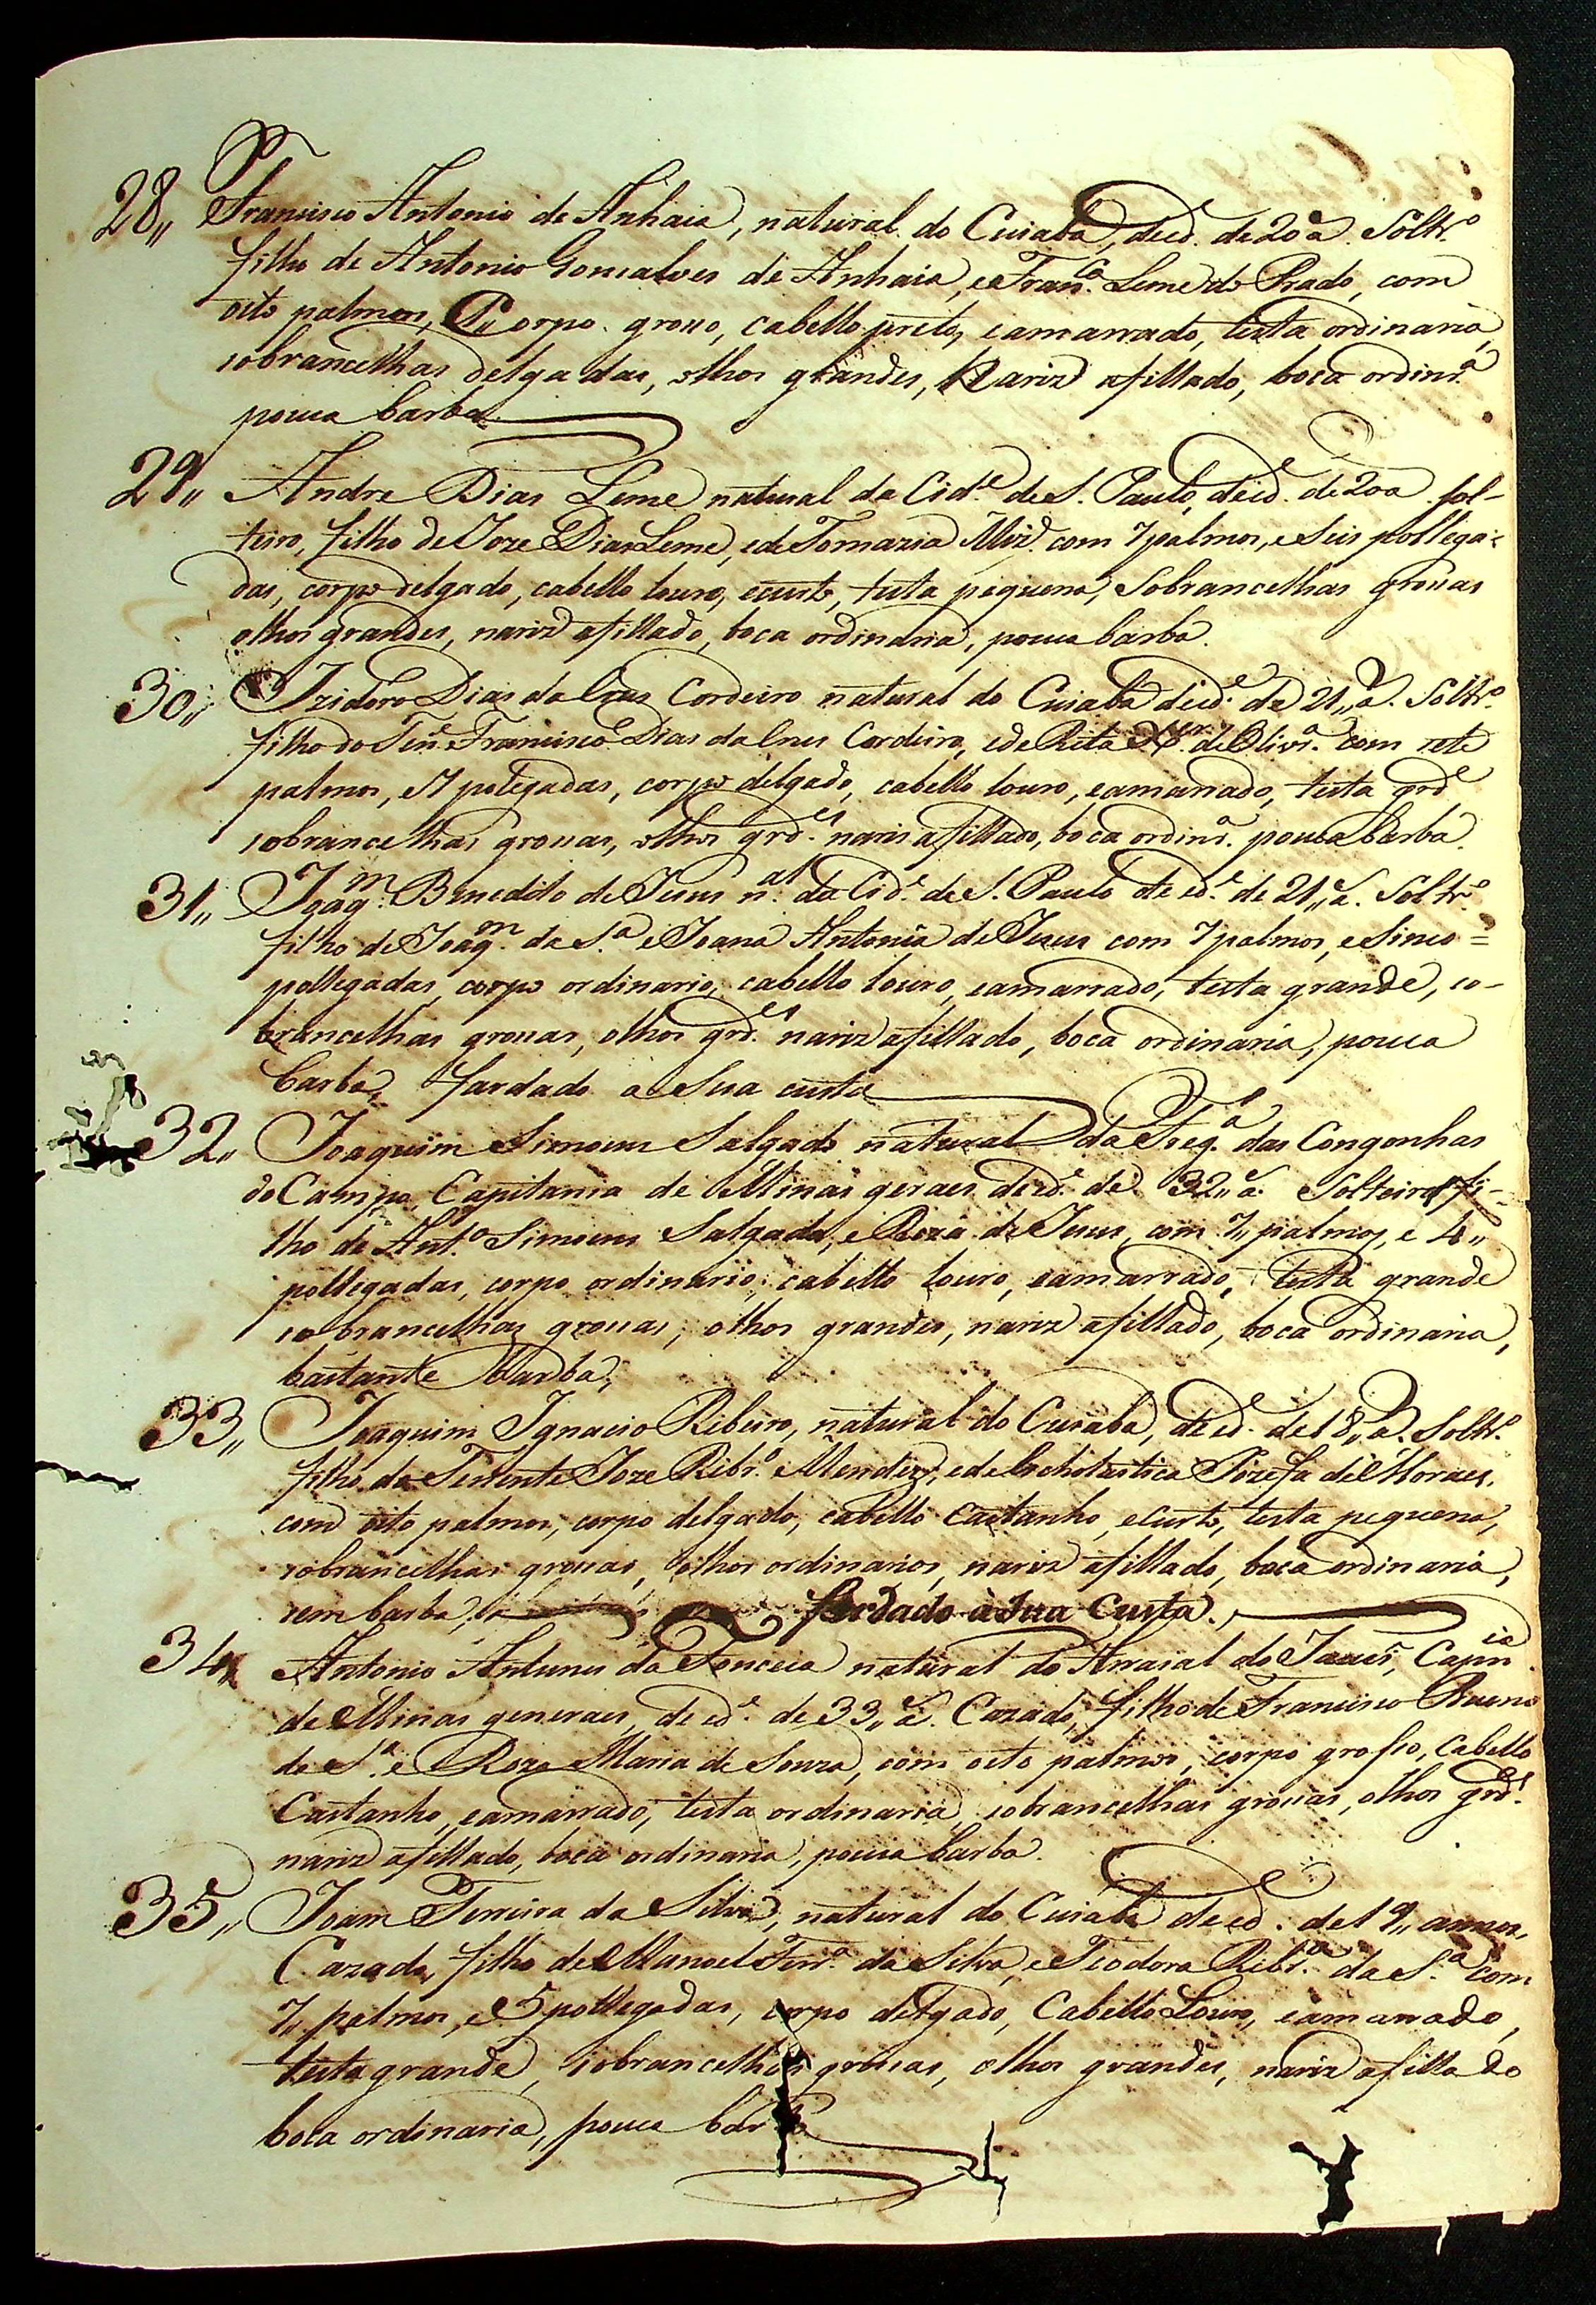 28,, Francisco Antonio de Anhaia, natural do Cuiabá, de ed.e de 20 a. Soltr.o
filho de Antonio Gonsalves de Anhaia, e Fran.ca Leme do Prado, com
oito palmos, Corpo grosso, cabello preto, e amarrado, testa ordinaria,
sobrancelhas delgadas, olhos grandes, Nariz afillado, boca ordinr.a
pouca barba
29,, Andre Dias Leme natural da Cid.e de S. Paulo, de id.e de 20 a. sol-
teiro, filho de Joze Dias Leme, e de Tomazia Miz. com 7 palmos, e seis pollega-
das, corpo delgado, cabello louro, e curto, testa pequena, Sobrancelhas grossas
olhos grandes, nariz afillado, boca ordinaria, pouca barba.
30,, Izidoro Dias da Crus Cordeiro natural do Cuiabá de id.e de 21,, a. Soltr.o
filho do Ten.e Francisco Dias da Crus Cordeiro, e de Rita X.er de Oliv.a com sete
palmos, e 7 polegadas, corpo delgado, cabello louro, e amarrado, testa grd.e
sobrancelhas grossas, olhos grd.es naris afillado, boca ordinr.a pouca barba.
31,, Joaq.m Benedito de Jesus n.al da Cid.e de S. Paulo de ed.e de 21,, a. Soltr.o
filho de Joaq.m da S.a e Joana Antonia de Jesus com 7 palmos, e Sinco =
pollegadas, corpo ordinario, cabello louro, e amarrado, testa grande, so-
brancelhas grossas, olhos grd.es nariz afillado, boca ordinaria, pouca
barba, fardado a Sua custa
32,, Joaquim Simoens Salgado natural da Freg.a das Congonhas
do Campo, Capitania de Minas geraes de ed.e de 32,, a. Solteiro, fi-
lho de Ant.o Simoens Salgado, e Roza de Jesus, com 7,, palmos, e 4,,
pollegadas, corpo ordinario, cabello louro, e amarrado, testa grande
sobrancelhas grossas, olhos grandes, nariz afillado, boca ordinaria,
bastante barba,
33,, Joaquim Ignacio Ribeiro, natural do Cuiabá, de ed.e de 18,, a. Soltr.o
filho do Tenente Joze Ribr.o Mendez, e de Escholastica Jozefa de Moraes.
com oito palmos, corpo delgado, cabello castanho, e curto, testa pequena,
sobrancelhas grossas, olhos ordinarios, nariz afillado, boca ordinaria,
sem barba, fardado à sua Custa.
34,, Antonio Antunes da Fonceca natural do Arraial do Capin.ia
de Minas generaes, de ed.e de 33,, a. Cazado, filho de Francisco Bueno
de S.a e Roza Maria de Souza, com oito palmos, corpo grosso, Cabello
Castanho, e amarrado, testa ordinaria, sobrancelhas grossas, olhos grd.es
nariz afillado, boca ordinaria, pouca barba.
35,, Joam Ferreira da Silva, natural do Cuiabá de ed.e de 19,, annos,
Cazado, filho de Manoel Ferr.a da Silva, e Teodora Ribr.a da S.a com
7,, palmos, e 5 pollegadas, corpo delgado, Cabello Louro, e amarrado,
testa grande, sobrancelhas grossas, olhos grandes, nariz afillado
boca ordinaria, pouca barba